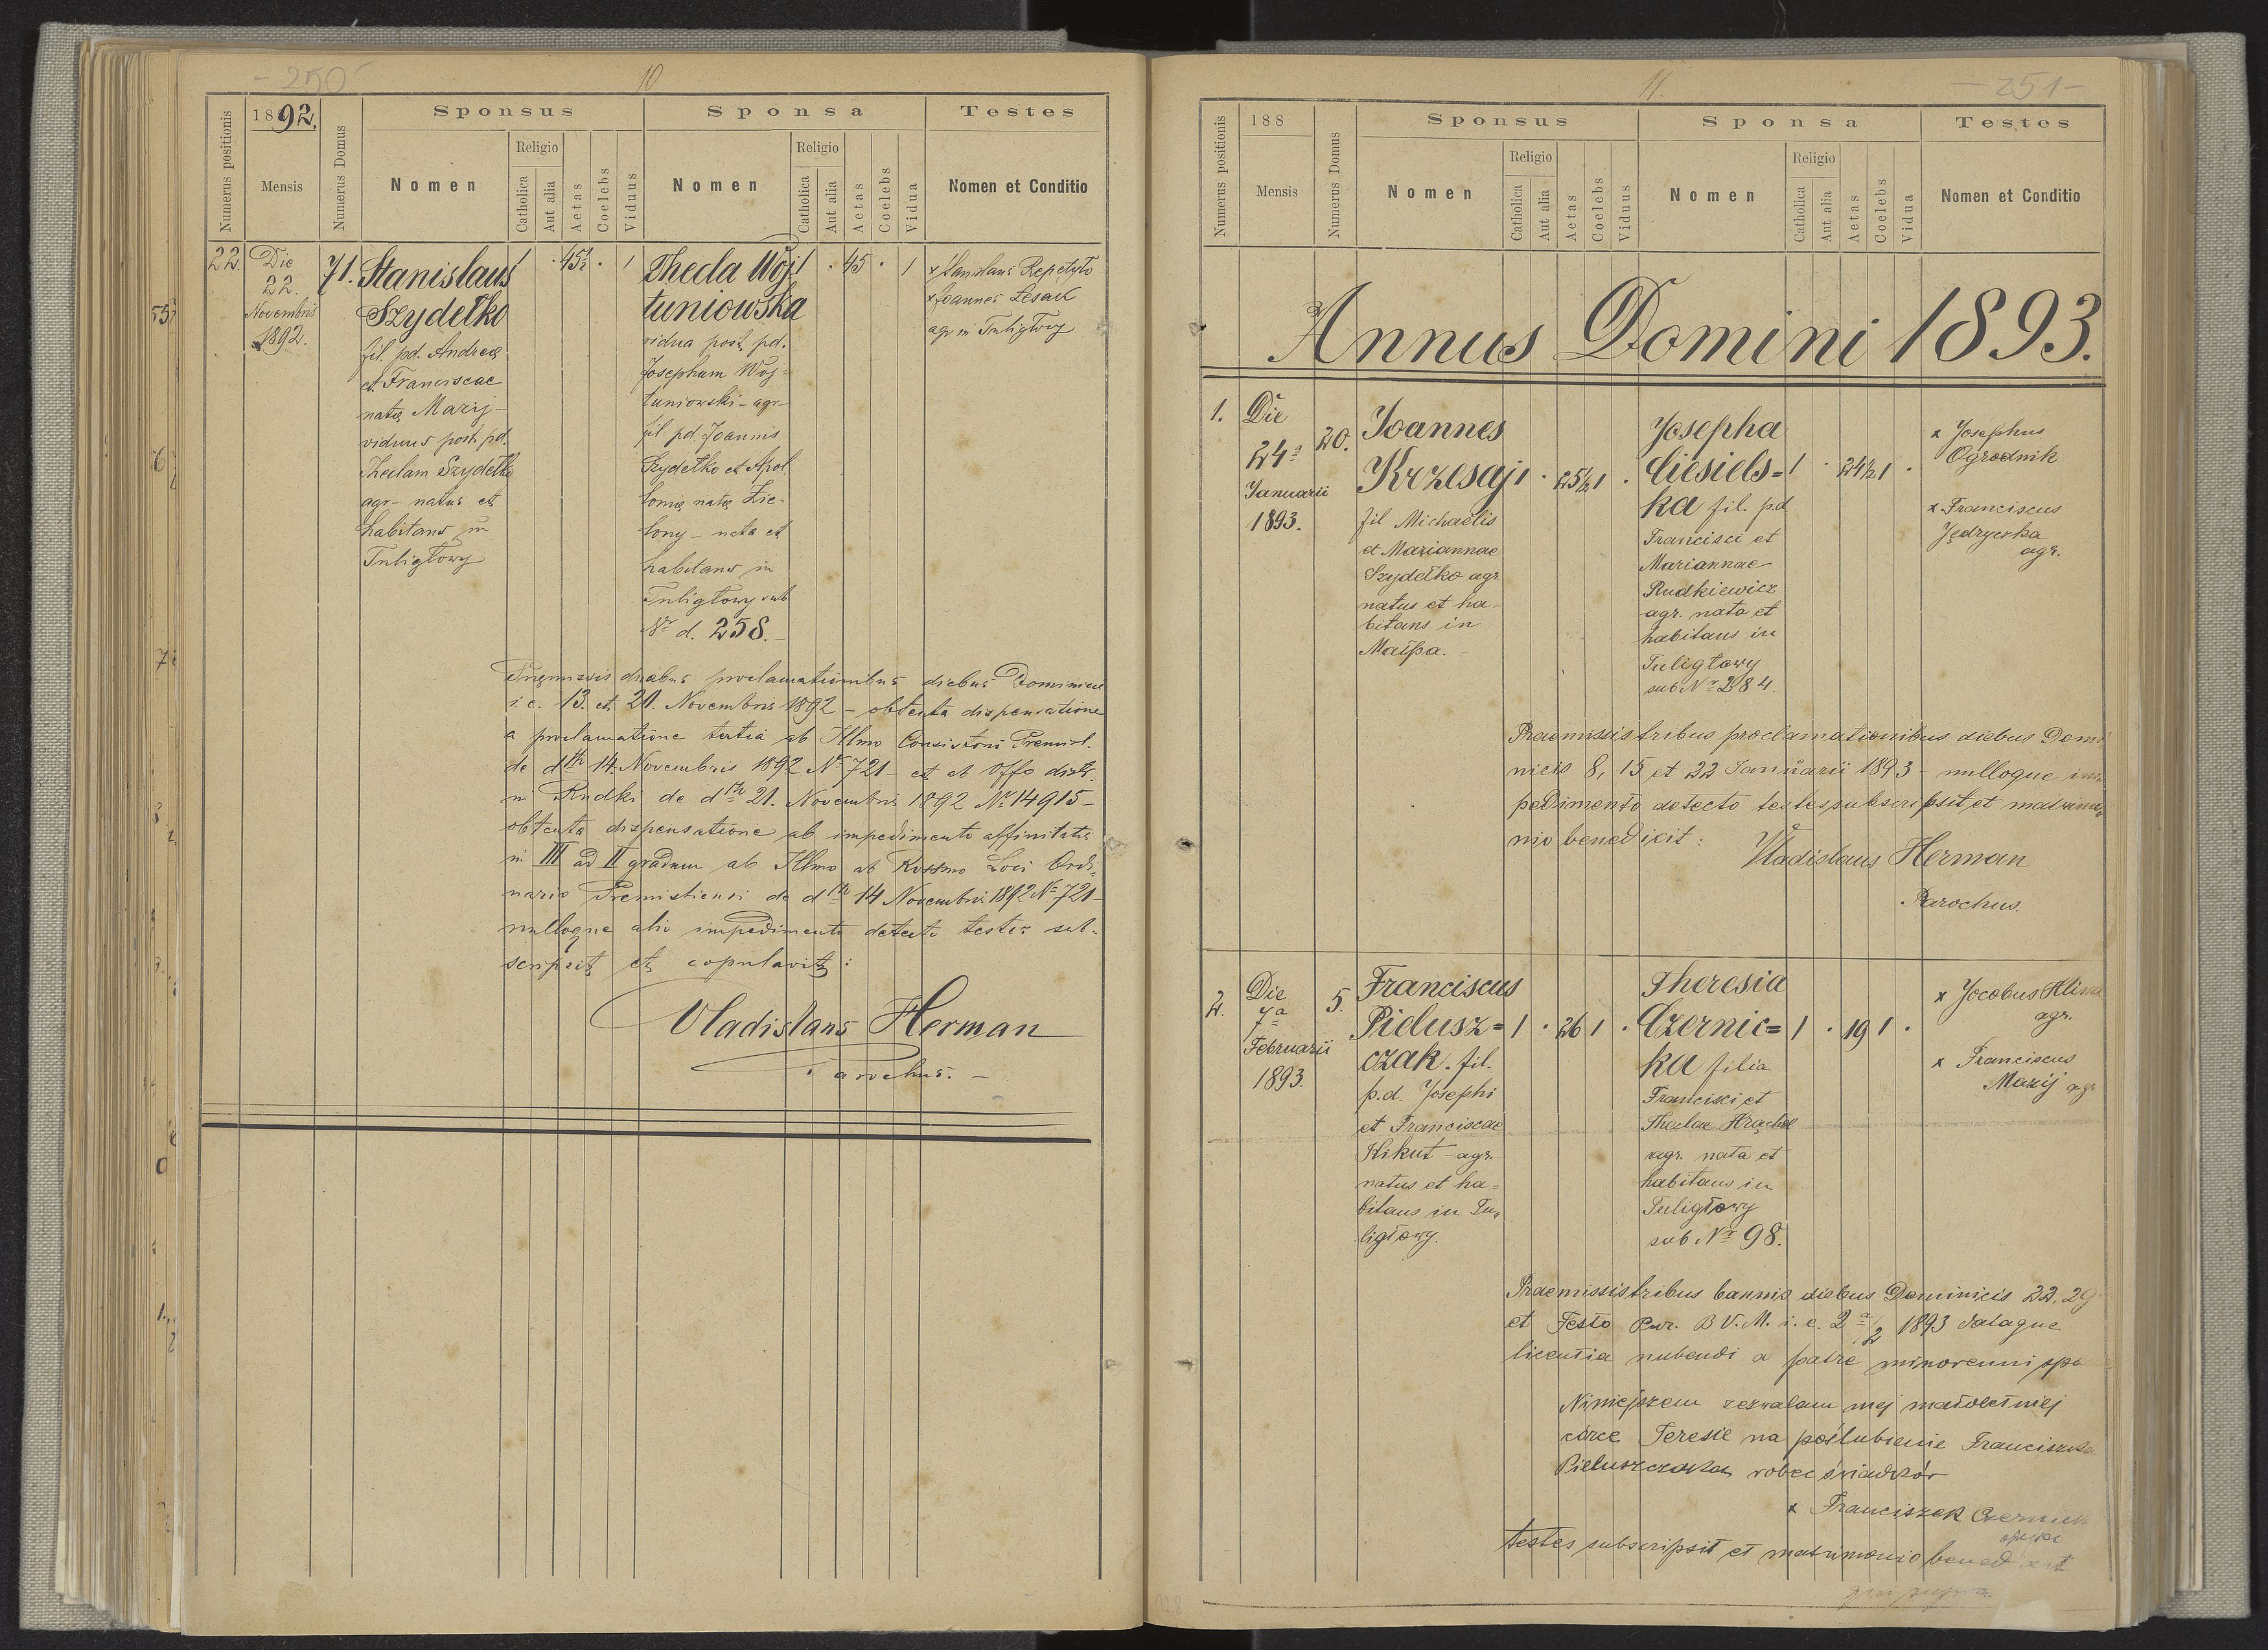 - 250 -
10
Numerus positionis
1892.
Mensis
Numerus Domus
Sponsus
Nomen
Religio
Catholica
Aut alia
Aetas
Coelebs
Viduus
Sponsa
Nomen
Religio
Catholica
Aut alia
Aetas
Coelebs
Vidua
Testes
Nomen et Conditio
22.
Die
22.
Novembris
1892.
71.
Stanislaus
Szydełko
fil. pd. Andreae
et Franciscae
natae Mazij -
viduus post. pd.
Theclam Szydełko
agr - natus et
habitans in
Tuligłowy
1 · 45½ · 1
Thecla Woj
tuniowska
vidua post pd.
Josephum Woj-
tuniowski - agr -
fil pd. Joannis
Szydełko et Apol
loniae natae Zie-
lony - nata et
habitans in
Tuligłowy sub
Nr d. 258. -
1 · 45 · 1
x Stanislaus Repetyło
x Joannes Lesak
agr in Tuligłowy
Praemissis duabus proclamationibus diebus Dominicis
i. e. 13. et 20. Novembris 1892 - obtenta dispensatione
a proclamatione tertia ab Illmo Consistorii Premisl.
de dto 14. Novembris 1892 Nr 721 - et ab Offo distr.
in Rudki de dto 21. Novembris 1892 Nr 14915 -
obtenta dispensatione ab impedimento affinitatis
in III ad II gradum ab Illmo ab Rvssmo Loci Ordi-
nario Premisliensi de dto 14 Novembris 1892 Nr 721 -
nulloque alio impedimento detecto testes sub-
scripsit et copulavit:
Vladislaus Herman
Parochus. -
11.
- 251 -
Numerus positionis
188
Mensis
Numerus Domus
Sponsus
Nomen
Religio
Catholica
Aut alia
Aetas
Coelebs
Viduus
Sponsa
Nomen
Religio
Catholica
Aut alia
Aetas
Coelebs
Vidua
Testes
Nomen et Conditio
Annus Domini 1893.
1.
Die
24a
Januarii
1893.
20.
Joannes
Krzesaj
fil Michaëlis
et Mariannae
Szydełko agr.
natus et ha=
bitans in
Małpa. -
1 · 25½ 1 ·
Josepha
Ciesiels=
ka fil. p.d
Francisci et
Mariannae
Rudkiewicz
agr. nata et
habitans in
Tuligłowy
sub Nr 284.
1 · 24½ 1 ·
x Josephus
Ogrodnik
x Franciscus
Jędrycka
agr.
Praemissis tribus proclamationibus diebus Domi
nicis 8, 15 et 22 Januarii 1893 - nulloque im
pedimento detecto testes subscripsit et matrimo
nio benedixit:
Vladislaus Herman
Parochus.
2.
Die
7a
Februarii
1893.
5.
Franciscus
Pielusz=
czak. fil.
p.d. Josephi
et Franciscae
Kikut - agr.
natus et ha=
bitans in Tu„
ligłowy.
1 · 26 1 ·
Theresia
Czernic=
ka filia
Francisci et
Theclae
agr. nata et
habitans in
Tuligłowy
sub Nr 98.
1 · 19 1 ·
x Jacobus
agr.
x Franciscus
Mazij agr
Praemissis tribus bannis diebus Dominicis 22, 29
et Festo Pur. B V. M. i. e. 2a/2 1893 dataque
licentia nubendi a patre minorenni
Niniejszem zezwalam mej małoletniej
córce Teresie na poślubienie Franciszka
Pieluszczaka wobec świadków
x Franciszek
testes subscripsit et matrimonio